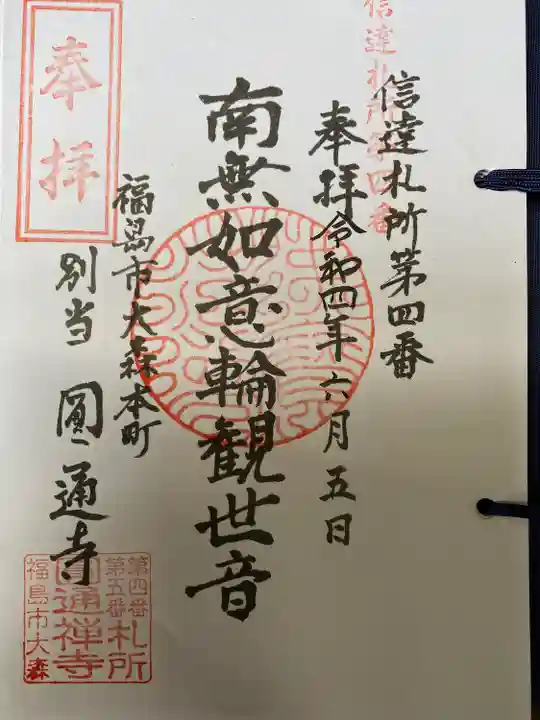 信達札所第四番
信達札所第四番
奉拝 令和四年六月五日
南無如意輪観世音
福島市大森本町
別当 圓通寺
奉拝
第四番
第五番
札所
圓通禅寺
福島市大森